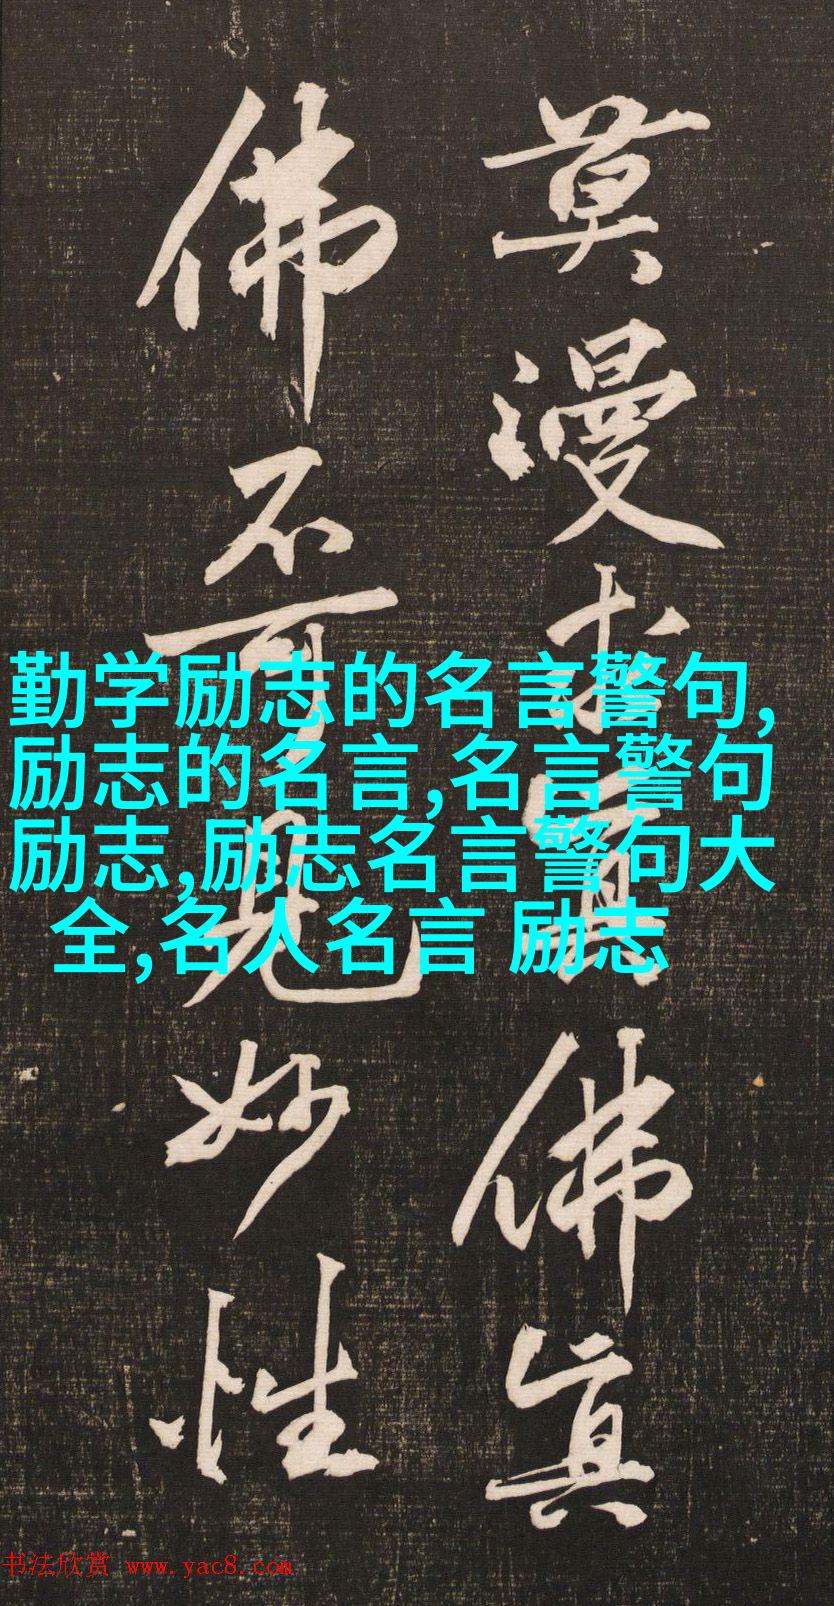 莫漫求真佛真
佛不可見妙性
勤学励志的名言警句,
励志的名言,名言警句
励志,励志名言警句大
全,名人名言 励志
书法欣赏 www.yac8.com